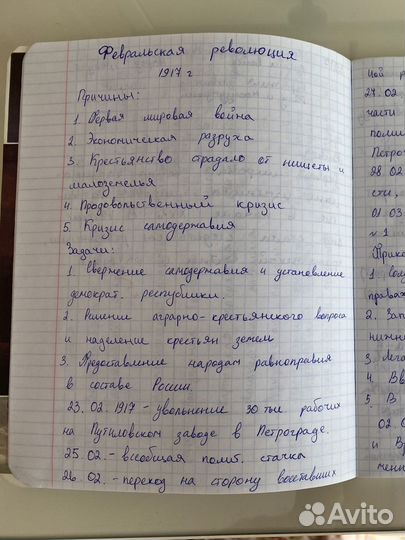 Февральская революция
1917 г
Причины:
1. Первая мировая война
2. Экономическая разруха
3. Крестьянство страдало от нищеты и
малоземелья
4. Продовольственный кризис
5. Кризис самодержавия
Задачи:
1. Свержение самодержавия и установление
демократ. республики.
2. Решение аграрно-крестьянского вопроса
и наделение крестьян землёй
3. Предоставление народам равноправия
в составе России.
23.02.1917 - увольнение 30 тыс рабочих
на Путиловском заводе в Петрограде.
25.02. - всеобщая полит. стачка
26.02. - переход на сторону восставших
27.02
части
поли
Петро
28.02
сти,
01 03
№ 1
Прика
1. Сол
права
2. Зап
нижни
4. Вв
5. В
02 0
и Вр
менн
Avito